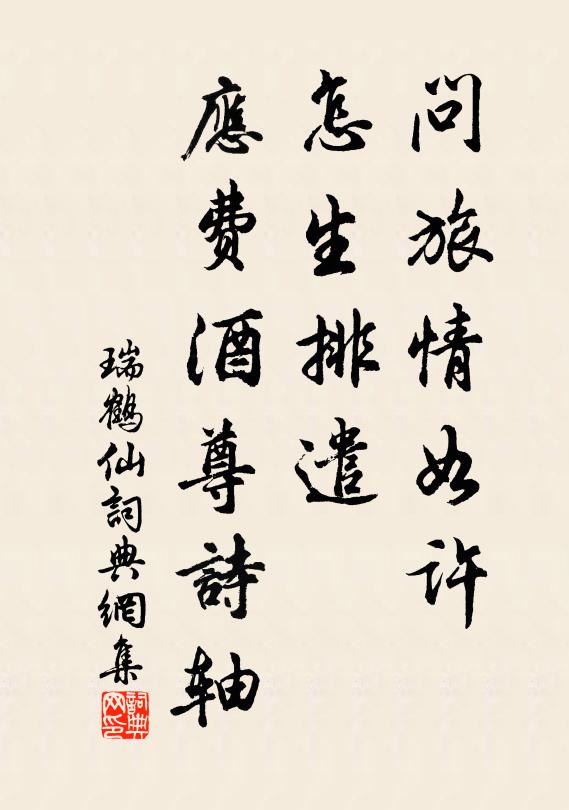 問旅情如许
怎生排遣
應費酒尊詩轴
瑞鶴仙詞典網集
詞典網印